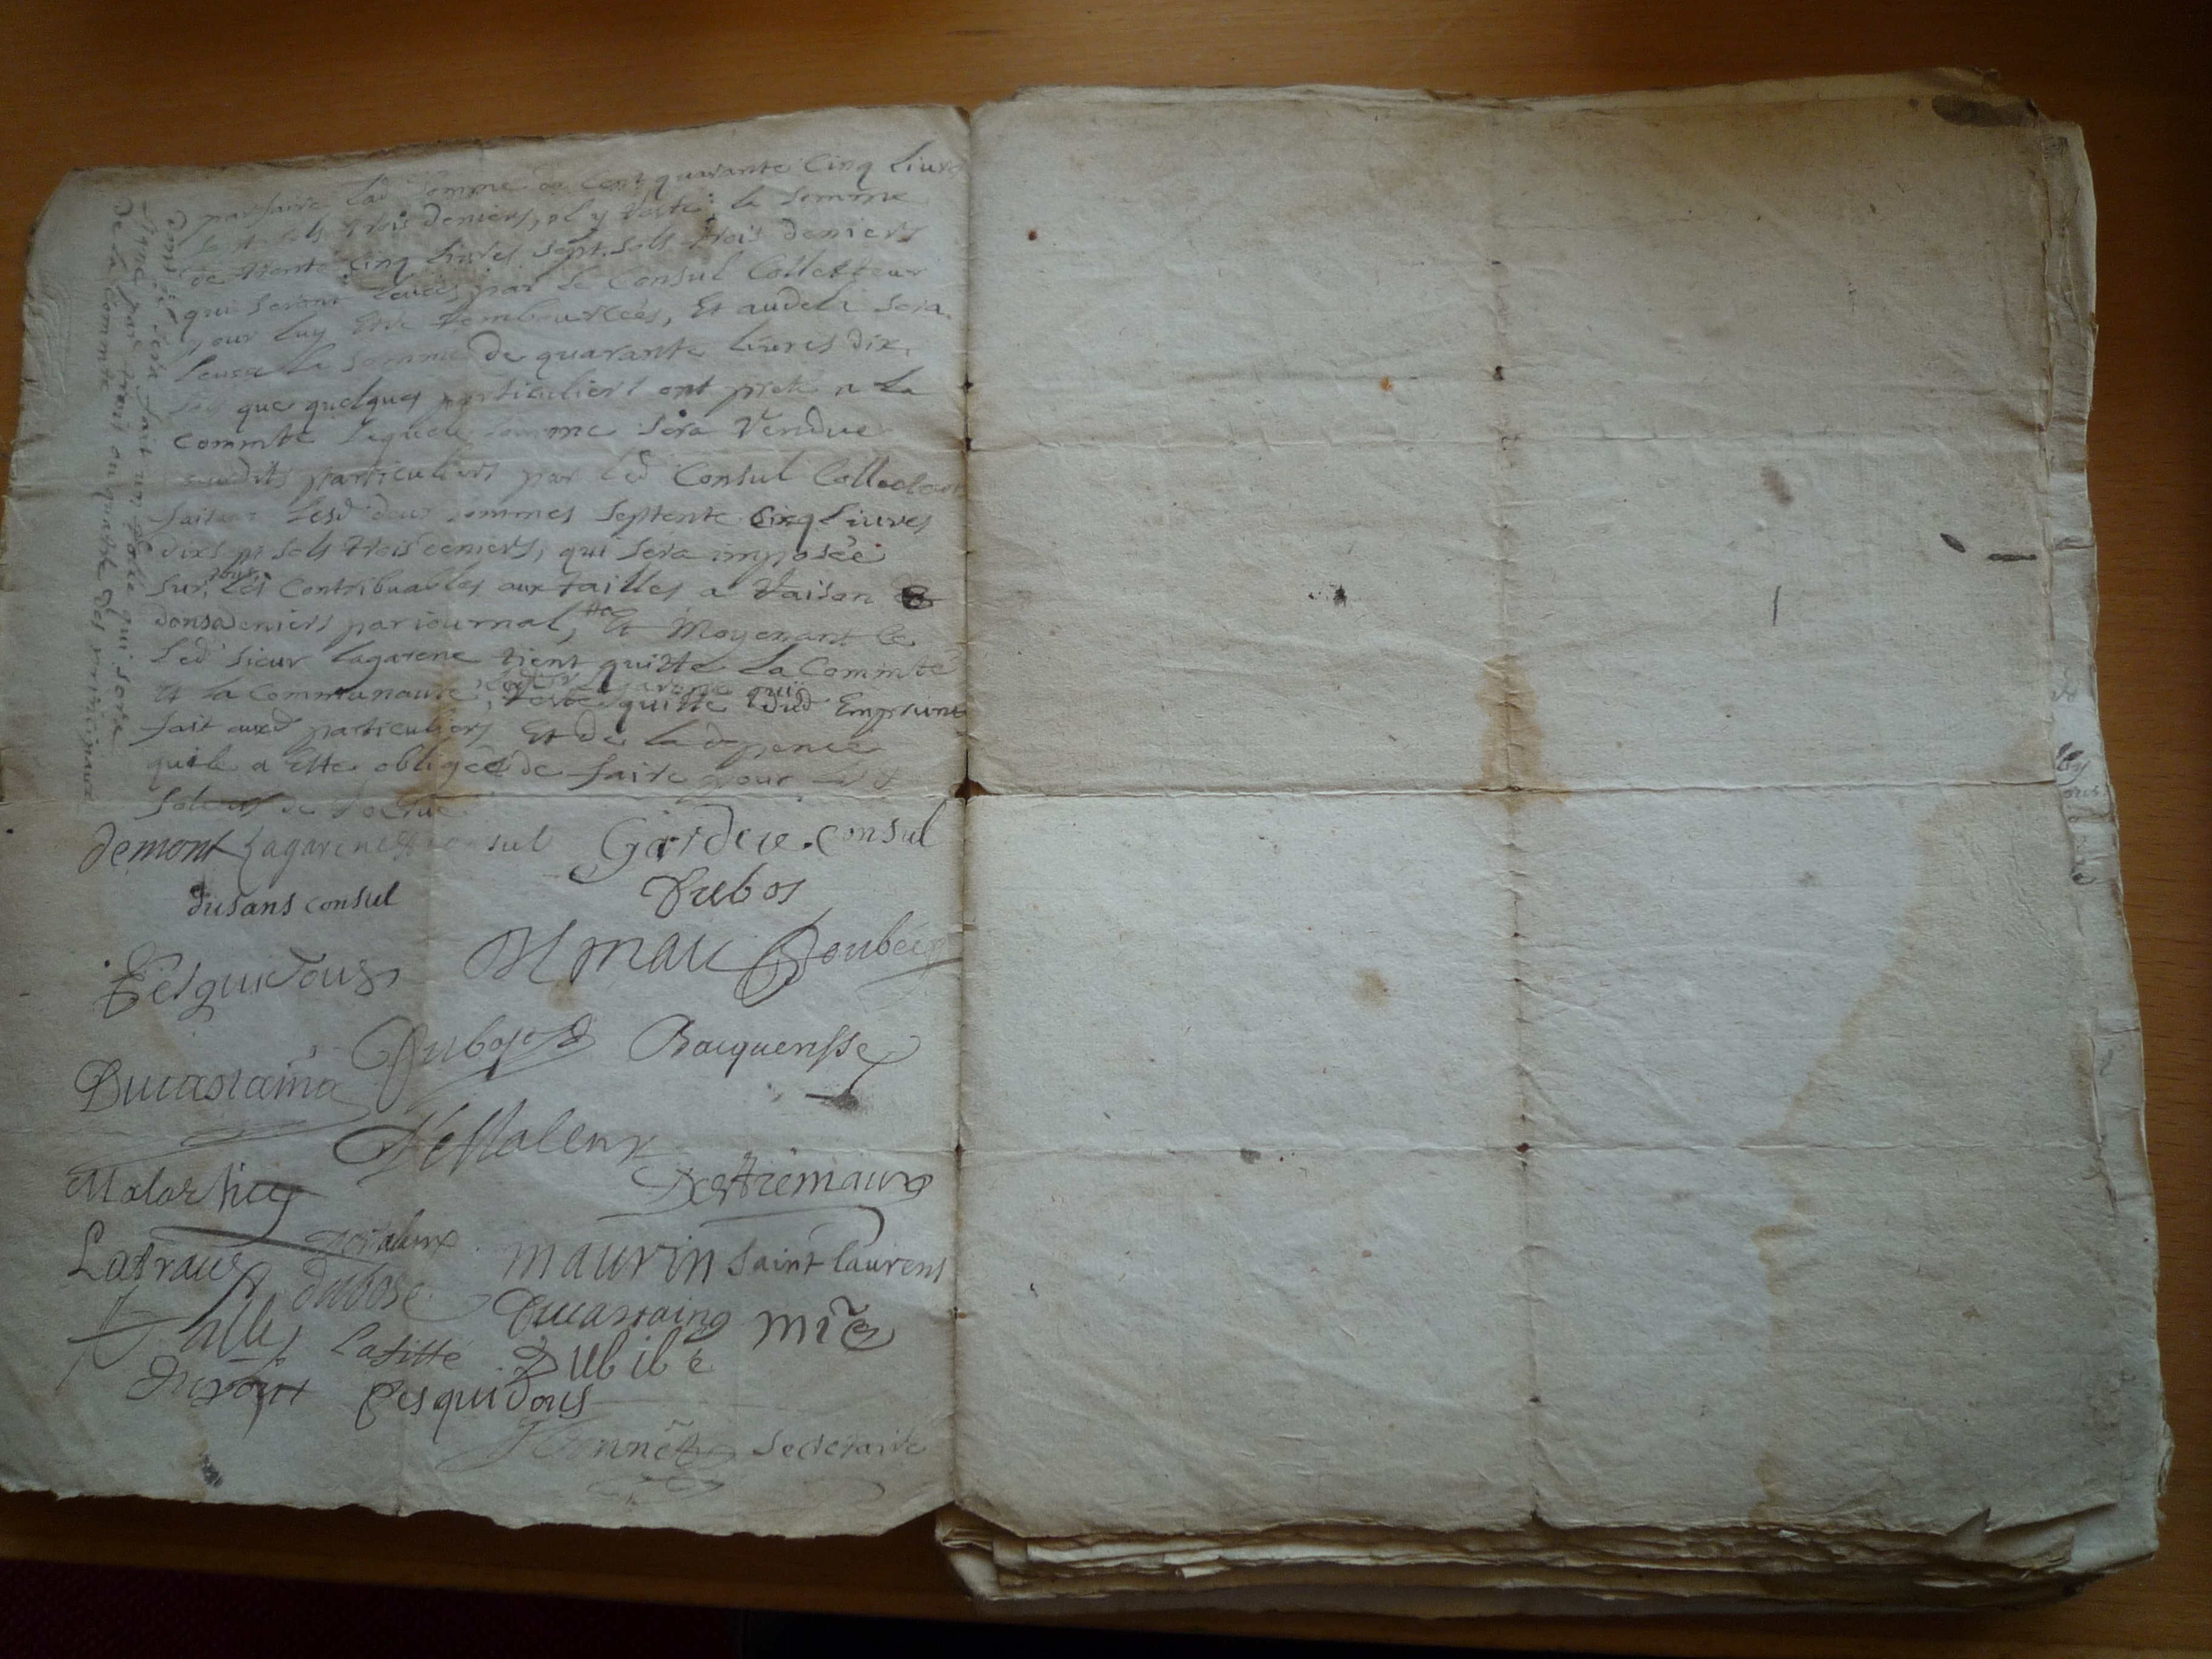 parfaire lad somme de Cent quarante Cinq Livres
sept sols trois deniers, il y reste la somme
de trente Cinq livres sept sols trois deniers
qui seront levées par le Consul Collecteur
pour luy etre rembourcées, Et audela sera
levée la somme de quarante livres dix
sols que quelques particuliers ont preté a la
Commté laquele somme sera rendue
auxdits particuliers par led Consul Collecteur
faisant lesd deux sommes septente Cinq Livres
dixsept sols trois deniers, qui sera imposée
sur tous les Contribuables aux tailles a raison de
deniers par journal, Et Moyenant ce
Led sieur Lagarene tient quitte la Commté
Et la Communauté ledsr Lagarene qui reste quitte dud Emprunt
fait auxd particuliers Et de la depence
qu'ele a Etté obligée de faire pour
Soldats de
dont il sera fait un rolle qui sera
signé par trois ou quatre des principaux
de la Commté
demont Lagarene consul Gardere consul
dusans consul Dubos
Pesquidous Doubeig
Dubosc Bacquerisse
Ducastaing
Destalenx
Malartieg Destremau
Latrau Destalenx maurin saint laurens
dubosc Ducastaing
Lafitte Dubibé
Dupouy Pesquidous
secretaire